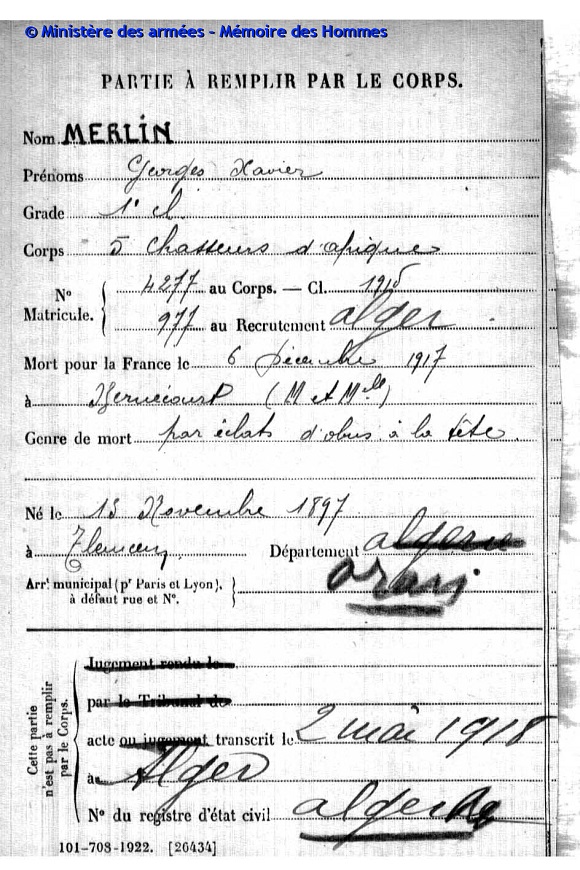 © Ministère des armées - Mémoire des Hommes
PARTIE À REMPLIR PAR LE CORPS.
Nom MERLIN
Prénoms Georges Xavier
Grade 1e cl.
Corps 5 Chasseurs d'afrique
N° Matricule. 4277 au Corps. — Cl. 1915
977 au Recrutement alger
Mort pour la France le 6 décembre 1917
à Bernécourt (M et Melle)
Genre de mort par éclats d'obus à la tête
Né le 13 Novembre 1897
à Tlemcen Département algerie
oran
Arrt municipal (pr Paris et Lyon),
à défaut rue et N°.
Cette partie n'est pas à remplir par le Corps.
Jugement rendu le
par le Tribunal de
acte ou jugement transcrit le 2 mai 1918
à Alger
N° du registre d'état civil alger
101-708-1922. [26434]